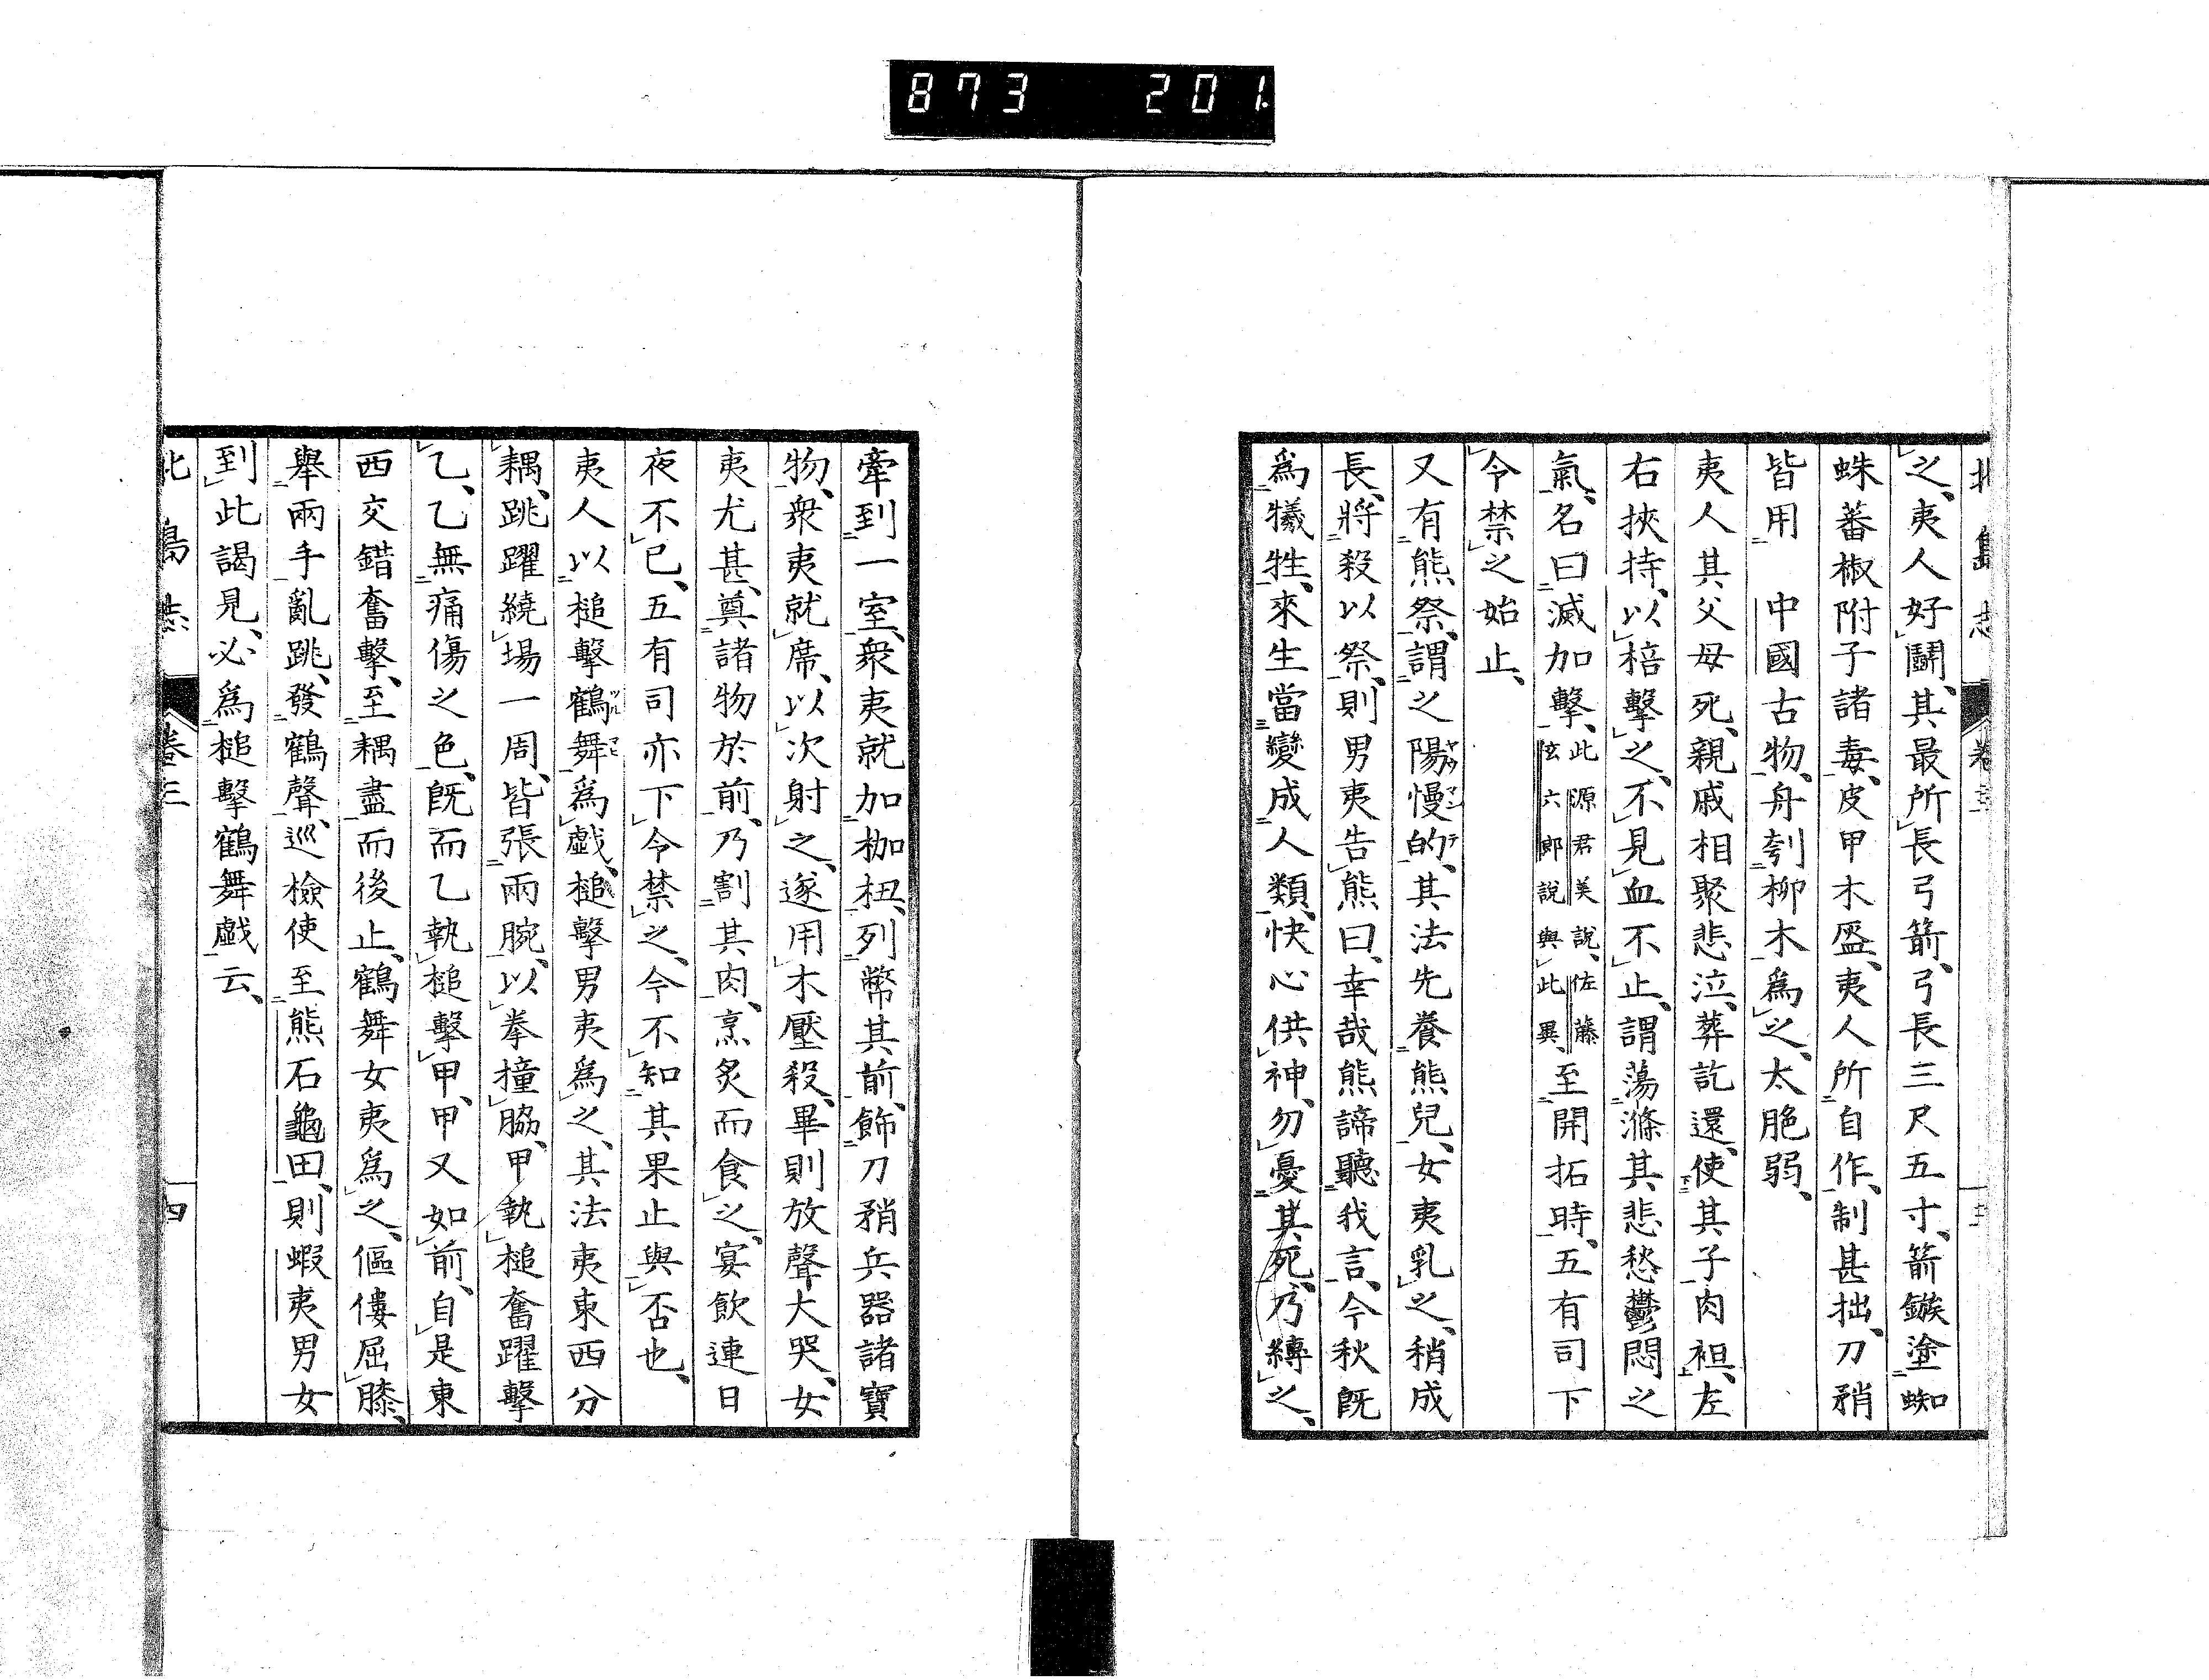 873 201
北島志 卷三
之、夷人好鬪、其最所長弓箭、弓長三尺五寸、箭鏃塗蜘
蛛蕃椒附子諸毒、皮甲木盔、夷人所自作、制甚拙、刀矟
皆用 中國古物、舟刳柳木爲之、太脆弱、
夷人其父母死、親戚相聚悲泣、葬訖還、使其子肉袒、左
右挾持、以棓擊之、不見血不止、謂蕩滌其悲愁鬱悶之
氣、名曰滅加擊、此源君美説、佐藤玄六郎説與此異、至開拓時、五有司下
令禁之始止、
又有熊祭、謂之陽慢的、其法先養熊兒、女夷乳之、稍成
長、將殺以祭、則男夷告熊曰、幸哉熊諦聽我言、今秋既
爲犧牲、來生當變成人類、快心供神、勿憂其死、乃縛之、
牽到一室、衆夷就加枷杻、列幣其前、飾刀矟兵器諸寶
物、衆夷就席、以次射之、遂用木壓殺、畢則放聲大哭、女
夷尤甚、奠諸物於前、乃割其肉、烹炙而食之、宴飲連日
夜不已、五有司亦下令禁之、今不知其果止與否也、
夷人以槌擊鶴舞爲戯、槌擊男夷爲之、其法夷東西分
耦、跳躍繞場一周、皆張兩腕、以拳撞脇、甲執槌奮躍擊
乙、乙無痛傷之色、既而乙執槌擊甲、甲又如前、自是東
西交錯奮擊、至耦盡而後止、鶴舞女夷爲之、傴僂屈膝、
舉兩手亂跳、發鶴聲、巡檢使至熊石龜田、則蝦夷男女
到此謁見、必爲槌擊鶴舞戯云、
北島志 卷三 四